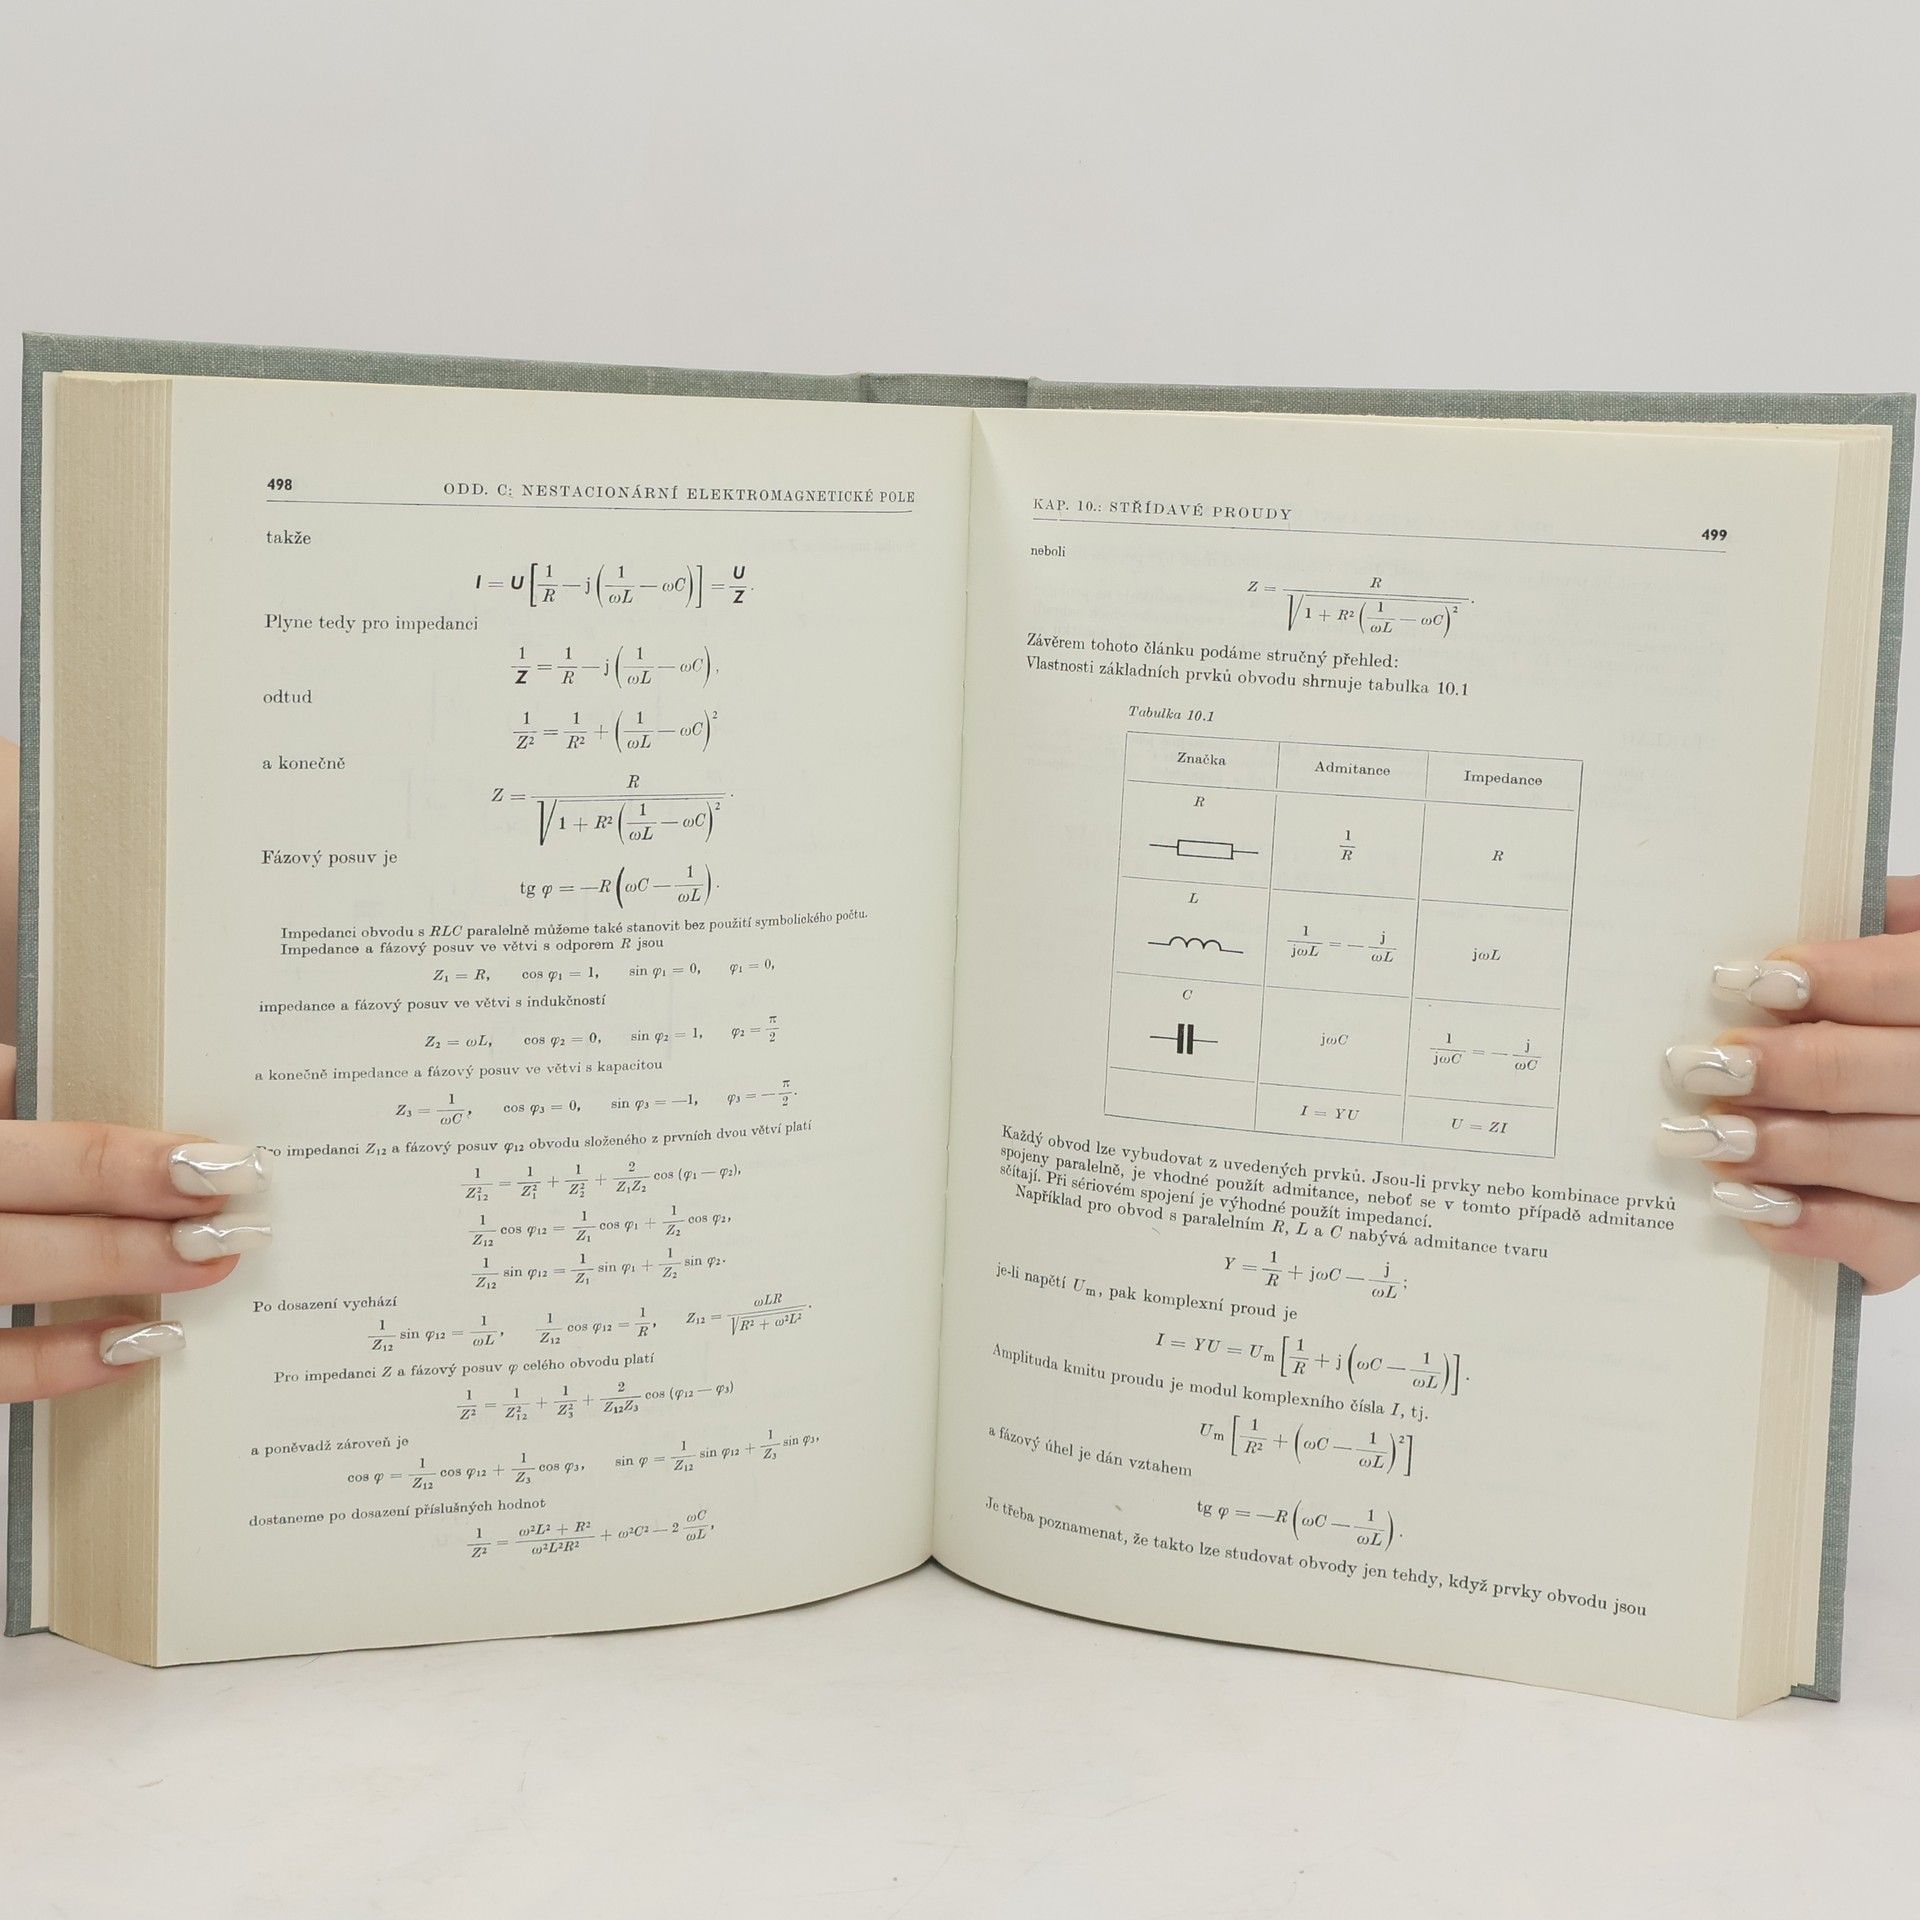 498
ODD. C: NESTACIONÁRNÍ ELEKTROMAGNETICKÉ POLE
takže
I = U [1/R − j (1/ωL − ωC)] = U/Z.
Plyne tedy pro impedanci
1/Z = 1/R − j (1/ωL − ωC),
odtud
1/Z² = 1/R² + (1/ωL − ωC)²
a konečně
Z = R / √(1 + R² (1/ωL − ωC)²).
Fázový posuv je
tg φ = −R (ωC − 1/ωL).
Impedanci obvodu s RLC paralelně můžeme také stanovit bez použití symbolického počtu.
Impedance a fázový posuv ve větvi s odporem R jsou
Z₁ = R, cos φ₁ = 1, sin φ₁ = 0, φ₁ = 0,
impedance a fázový posuv ve větvi s indukčností
Z₂ = ωL, cos φ₂ = 0, sin φ₂ = 1, φ₂ = π/2
a konečně impedance a fázový posuv ve větvi s kapacitou
Z₃ = 1/ωC, cos φ₃ = 0, sin φ₃ = −1, φ₃ = −π/2.
Pro impedanci Z₁₂ a fázový posuv φ₁₂ obvodu složeného z prvních dvou větví platí
1/Z₁₂² = 1/Z₁² + 1/Z₂² + 2/Z₁Z₂ cos (φ₁ − φ₂),
1/Z₁₂ cos φ₁₂ = 1/Z₁ cos φ₁ + 1/Z₂ cos φ₂,
1/Z₁₂ sin φ₁₂ = 1/Z₁ sin φ₁ + 1/Z₂ sin φ₂.
Po dosazení vychází
1/Z₁₂ sin φ₁₂ = 1/ωL, 1/Z₁₂ cos φ₁₂ = 1/R, Z₁₂ = ωLR / √(R² + ω²L²).
Pro impedanci Z a fázový posuv φ celého obvodu platí
1/Z² = 1/Z₁₂² + 1/Z₃² + 2/Z₁₂Z₃ cos (φ₁₂ − φ₃)
a poněvadž zároveň je
cos φ = 1/Z₁₂ cos φ₁₂ + 1/Z₃ cos φ₃, sin φ = 1/Z₁₂ sin φ₁₂ + 1/Z₃ sin φ₃,
dostaneme po dosazení příslušných hodnot
1/Z² = (ω²L² + R²)/ω²L²R² + ω²C² − 2 ωC/ωL,
KAP. 10.: STŘÍDAVÉ PROUDY
499
neboli
Z = R / √(1 + R² (1/ωL − ωC)²).
Závěrem tohoto článku podáme stručný přehled:
Vlastnosti základních prvků obvodu shrnuje tabulka 10.1
Tabulka 10.1
Značka Admitance Impedance
R
1/R R
L
1/jωL = − j/ωL jωL
C
jωC 1/jωC = − j/ωC
I = YU U = ZI
Každý obvod lze vybudovat z uvedených prvků. Jsou-li prvky nebo kombinace prvků
spojeny paralelně, je vhodné použít admitance, neboť se v tomto případě admitance
sčítají. Při sériovém spojení je výhodné použít impedancí.
Například pro obvod s paralelním R, L a C nabývá admitance tvaru
Y = 1/R + jωC − j/ωL;
je-li napětí Uₘ, pak komplexní proud je
I = YU = Uₘ [1/R + j (ωC − 1/ωL)].
Amplituda kmitu proudu je modul komplexního čísla I, tj.
Uₘ [1/R² + (ωC − 1/ωL)²]
a fázový úhel je dán vztahem
tg φ = −R (ωC − 1/ωL).
Je třeba poznamenat, že takto lze studovat obvody jen tehdy, když prvky obvodu jsou